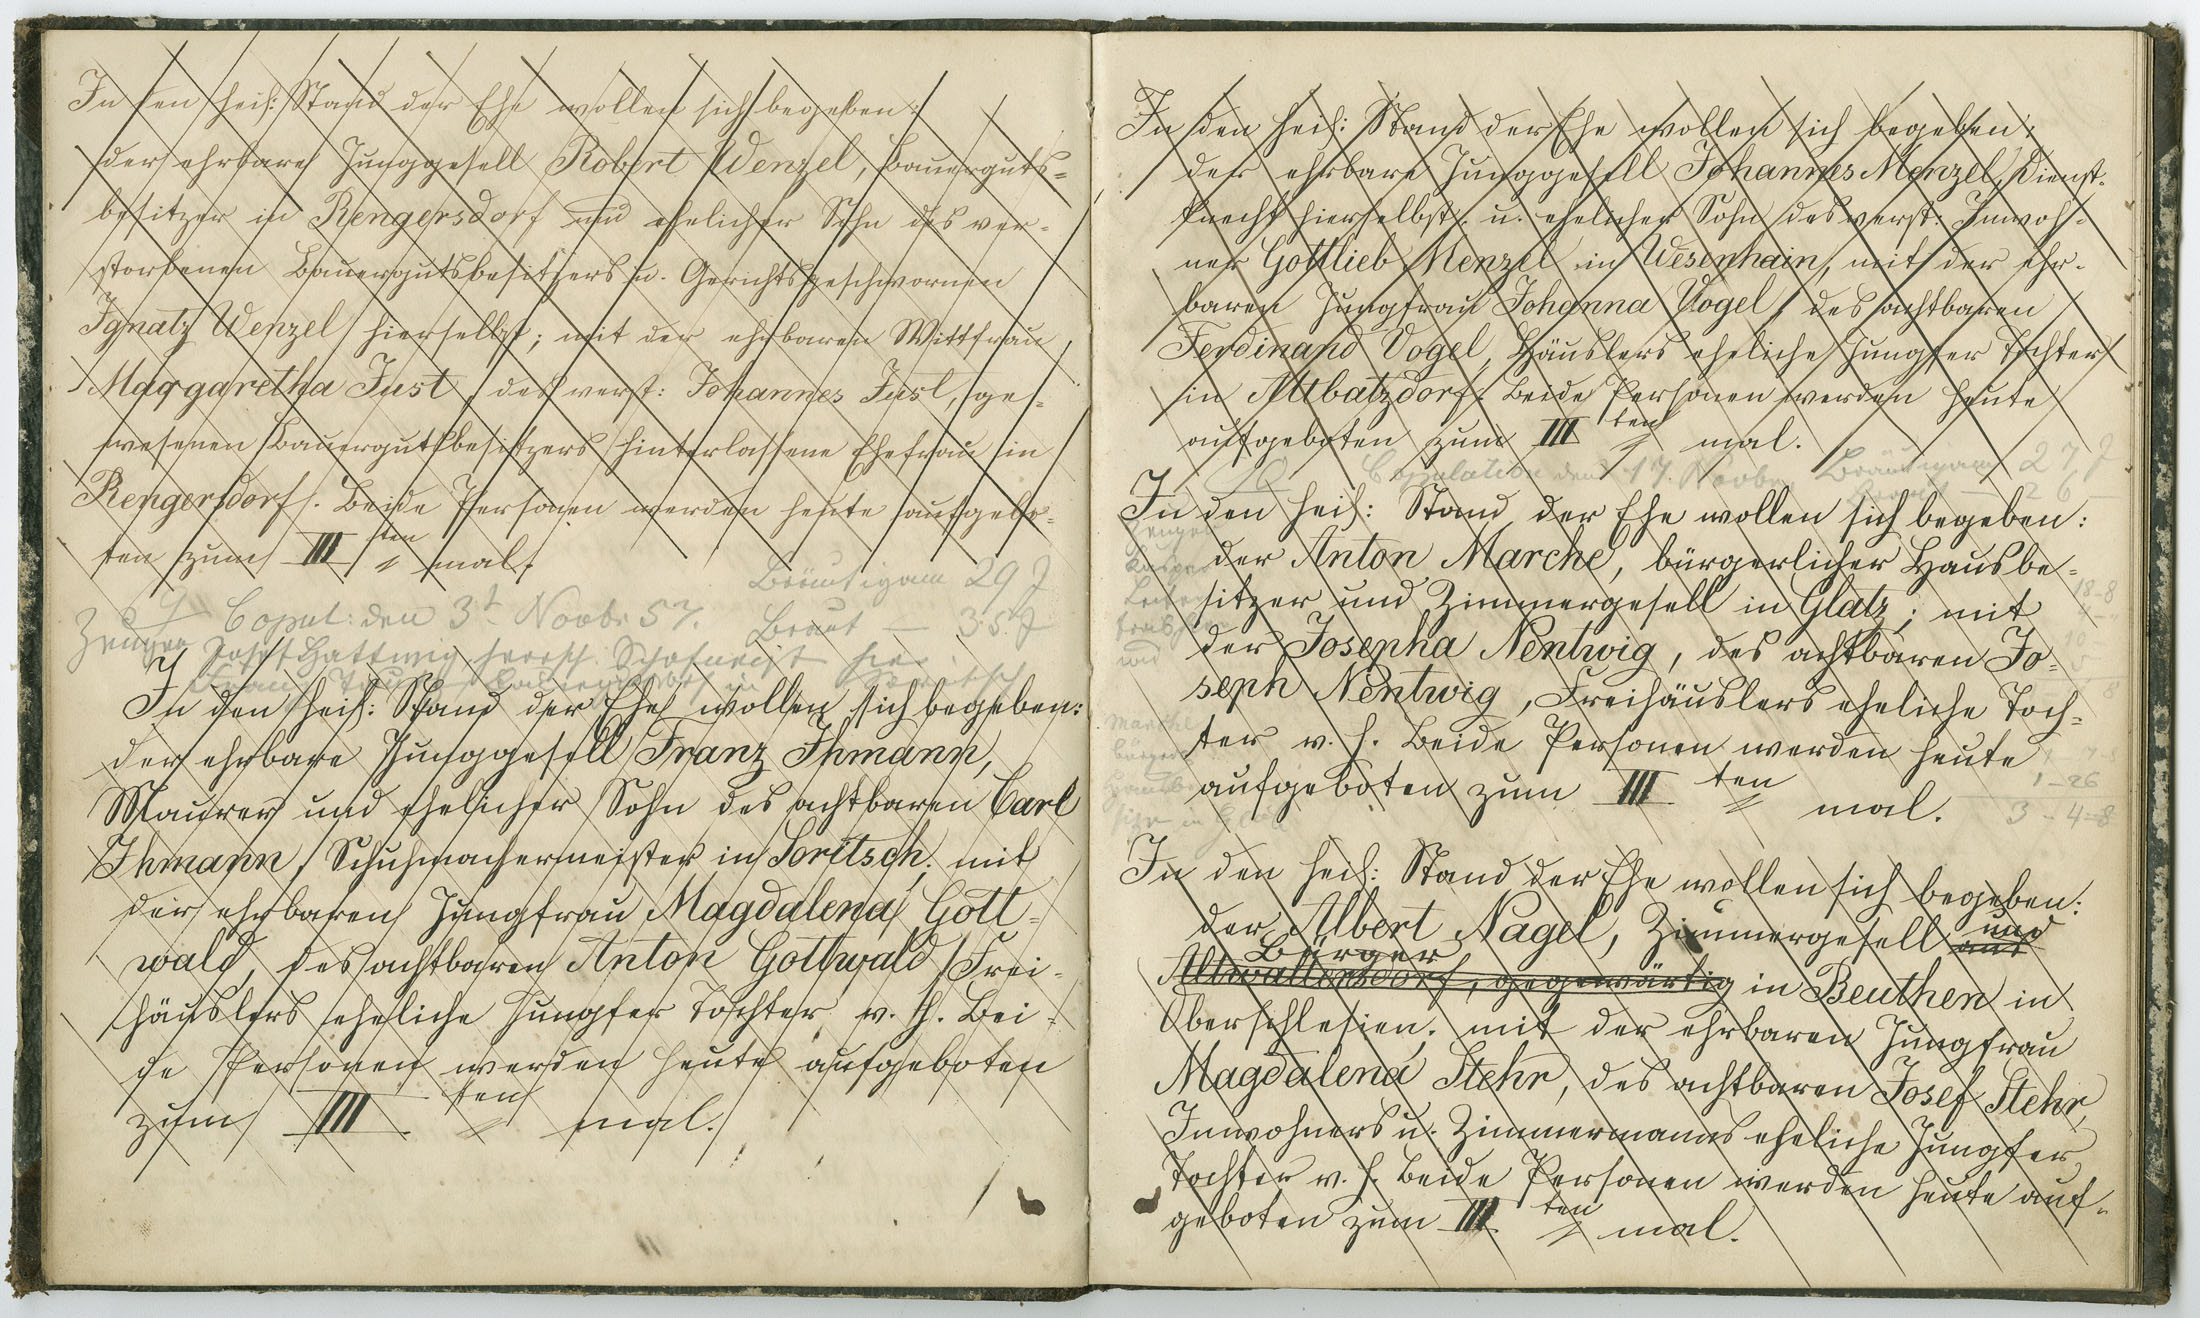 In den heil: Stand der Ehe wollen sich begeben:
der ehrbare Junggesell Robert Wenzel, Bauerguts=
besitzer in Rengersdorf und ehelicher Sohn des ver-
storbenen Bauergutsbesitzers u. Gerichtsgeschwornen
Ignatz Wenzel hierselbst; mit der ehrbaren Wittfrau
Margaretha Just, des verst: Johannes Just, ge=
wesenen Bauergutsbesitzers hinterlassene Ehefrau in
Rengersdorf. Beide Personen werden heute aufgebo=
ten zum III ten mal.
Bräutigam 29 J
Copul: den 3t Novbr 57. Braut — 35 J
Zeugen Josef Hattwig herrsch. Schafknecht hier
Franz in Soritsch
In den heil: Stand der Ehe wollen sich begeben:
der ehrbare Junggesell Franz Ihmann,
Maurer und ehelicher Sohn des achtbaren Carl
Ihmann, Schuhmachermeister in Soritsch; mit
der ehrbaren Jungfrau Magdalena Gott=
wald, des achtbaren Anton Gottwald Frei-
häuslers eheliche Jungfer Tochter v. h. Bei-
de Personen werden heute aufgeboten
zum III ten mal.
In den heil: Stand der Ehe wollen sich begeben:
der ehrbare Junggesell Johannes Menzel, Dienst-
knecht hierselbst u. ehelicher Sohn des verst: Inwoh-
ner Gottlieb Menzel in Wesenhain, mit der ehr-
baren Jungfrau Johanna Vogel, des achtbaren
Ferdinand Vogel, Häuslers eheliche Jungfer Tochter
in Altbatzdorf. Beide Personen werden heute
aufgeboten zum III ten mal.
Copulation den 17. Novber Bräutigam 27 J
Braut — 26 —
In den heil: Stand der Ehe wollen sich begeben:
der Anton Marche, bürgerlicher Hausbe=
sitzer und Zimmergesell in Glatz; mit
der Josepha Nentwig, des achtbaren Jo=
seph Nentwig, Freihäuslers eheliche Toch=
ter v. h. Beide Personen werden heute
aufgeboten zum III ten mal.
Zeugen
und
Marche
bürger
Hausbe
sitzer in Glatz
18-8
1-26
3-4-8
In den heil: Stand der Ehe wollen sich begeben:
der Albert Nagel, Zimmergesell aus und
Bürger
Altwaltersdorf, gegenwärtig in Beuthen in
Oberschlesien; mit der ehrbaren Jungfrau
Magdalena Stehr, des achtbaren Josef Stehr,
Inwohners u. Zimmermanns eheliche Jungfer
Tochter v. h. Beide Personen werden heute auf-
geboten zum III ten mal.